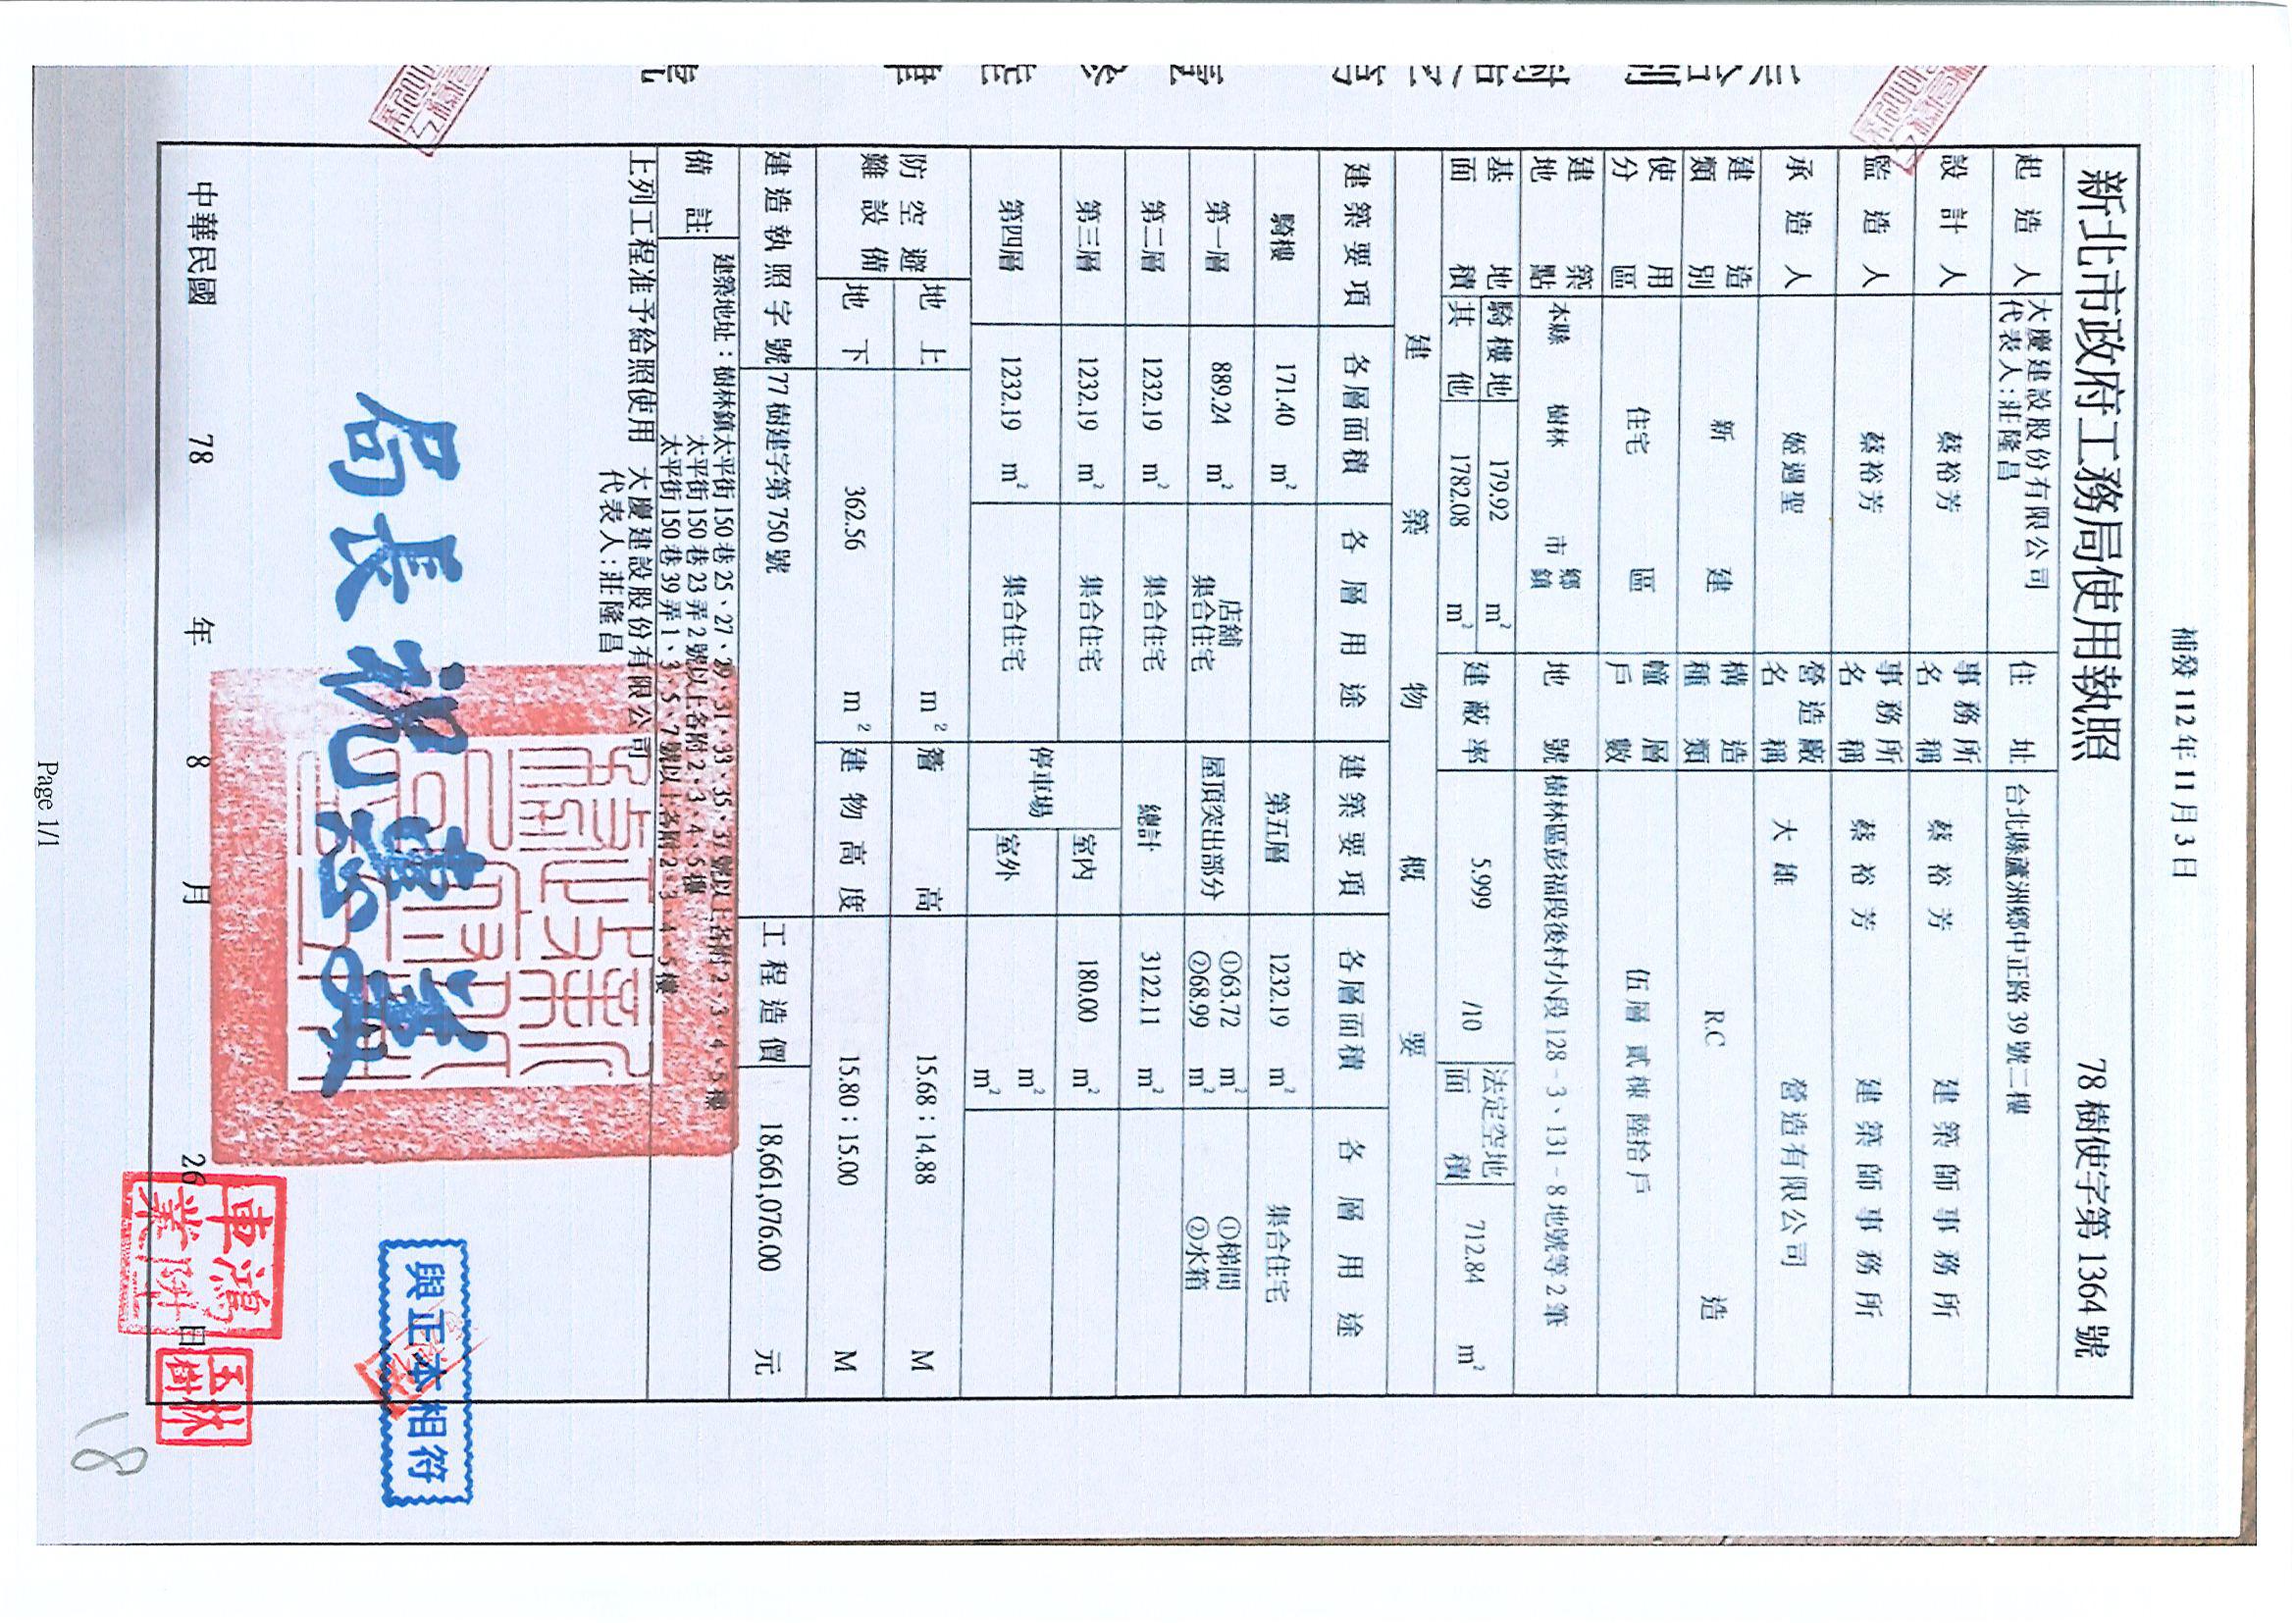 補發 112 年 11 月 3 日
新北市政府工務局使用執照 78 樹使字第 1364 號
起造人 大慶建設股份有限公司 代表人:莊隆昌 住址 台北縣蘆洲鄉中正路 39 號二樓
設計人 蔡裕芳 事務所名稱 蔡裕芳 建築師事務所
監造人 蔡裕芳 事務所名稱 蔡裕芳 建築師事務所
承造人 姬週聖 營造廠名稱 大雄 營造有限公司
建造類別 新建 構造種類 R.C 造
使用分區 住宅 區 幢層戶數 伍層 貳棟 陸拾戶
建築地點 本縣 樹林 鄉鎮市 地號 樹林區彭福段後村小段 128-3、131-8 地號等 2 筆
基地面積 騎樓地 179.92 m² 其他 1782.08 m² 建蔽率 5.999 /10 法定空地面積 712.84 m²
建築物概要
建築要項 各層面積 各層用途 建築要項 各層面積 各層用途
騎樓 171.40 m² 第五層 1232.19 m² 集合住宅
第一層 889.24 m² 店舖 集合住宅 屋頂突出部分 ①63.72 m² ②68.99 m² ①梯間 ②水箱
第二層 1232.19 m² 集合住宅 總計 3122.11 m²
第三層 1232.19 m² 集合住宅 停車場 室內 180.00 m²
第四層 1232.19 m² 集合住宅 室外 m² m²
防空避難設備 地上 m² 簷高 15.68:14.88 M
地下 362.56 m² 建物高度 15.80:15.00 M
建造執照字號 77 樹建字第 750 號 工程造價 18,661,076.00 元
備註 建築地址:樹林鎮太平街 150 巷 25、27、29、31、33、35、37 號以上各附 2、3、4、5 樓
太平街 150 巷 23 弄 2 號以上各附 2、3、4、5 樓
太平街 150 巷 39 弄 1、3、5、7 號以上各附 2、3、4、5 樓
上列工程准予給照使用 大慶建設股份有限公司
代表人:莊隆昌
局長祝惠美
與正本相符
中華民國 78 年 8 月 26 日
Page 1/1